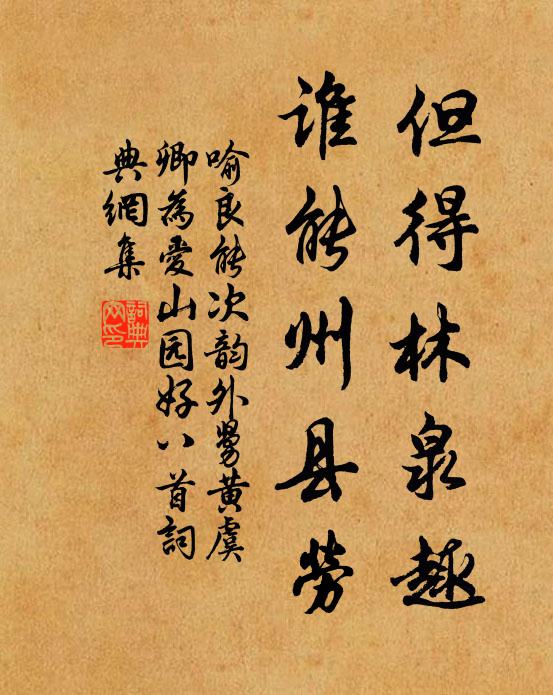 但得林泉趣
谁能州县劳
喻良能次韵外舅黄虞
卿為爱山园好八首詞
典網集
詞典网印